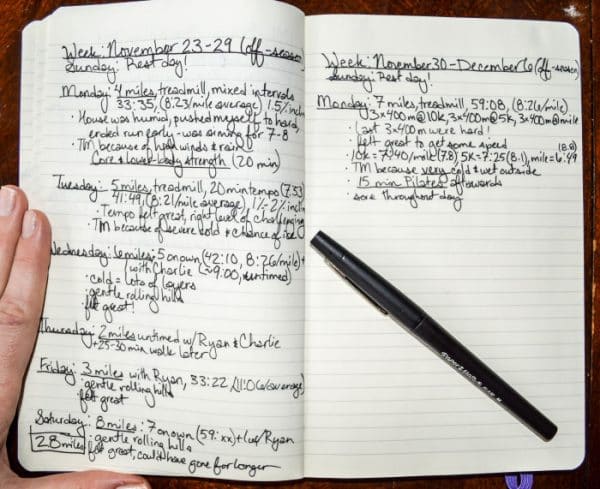 Week: November 23-29 (off-season)
Sunday: Rest day!
Monday: 4 miles, treadmill, mixed intervals
33:35, (8:23/mile average) 1.5% incline
· House was humid, pushed myself to hard,
ended run early - was aiming for 7-8
· TM because of head winds & rain
Core & lower-body strength (20 min)
Tuesday: 5 miles, treadmill, 20 min tempo (7:53)
41:49, (8:21/mile average), 1%-2% incline
· Tempo felt great, right level of challenging
· TM because of severe cold & chance of ice
Wednesday: 6 miles: 5 on own (42:10, 8:26/mile) +
1 with Charlie (~9:00, untimed)
· cold = lots of layers
· gentle rolling hills
· felt great!
Thursday: 2 miles untimed w/ Ryan & Charlie
+25-30 min walk later
Friday: 3 miles with Ryan, 33:22 (11:06/average)
· gentle rolling hills
· felt great
Saturday: 8 miles: 7 on own (59:xx) + 1 w/ Ryan
28 miles · gentle rolling hills
· felt great, could have gone for longer
Week: November 30-December 6 (off-season)
Sunday: Rest day!
Monday: 7 miles, treadmill, 59:08, (8:26/mile)
3x400m@10k, 3x400m@5k, 3x400m@mile
· Last 3x400m were hard!
· felt great to get some speed
10k = 7:40/mile (7.8) 5k = 7:25 (8.1), mile = 6:49 (8.8)
· TM because very cold & wet outside
· 15 min Pilates afterwards
· sore throughout day